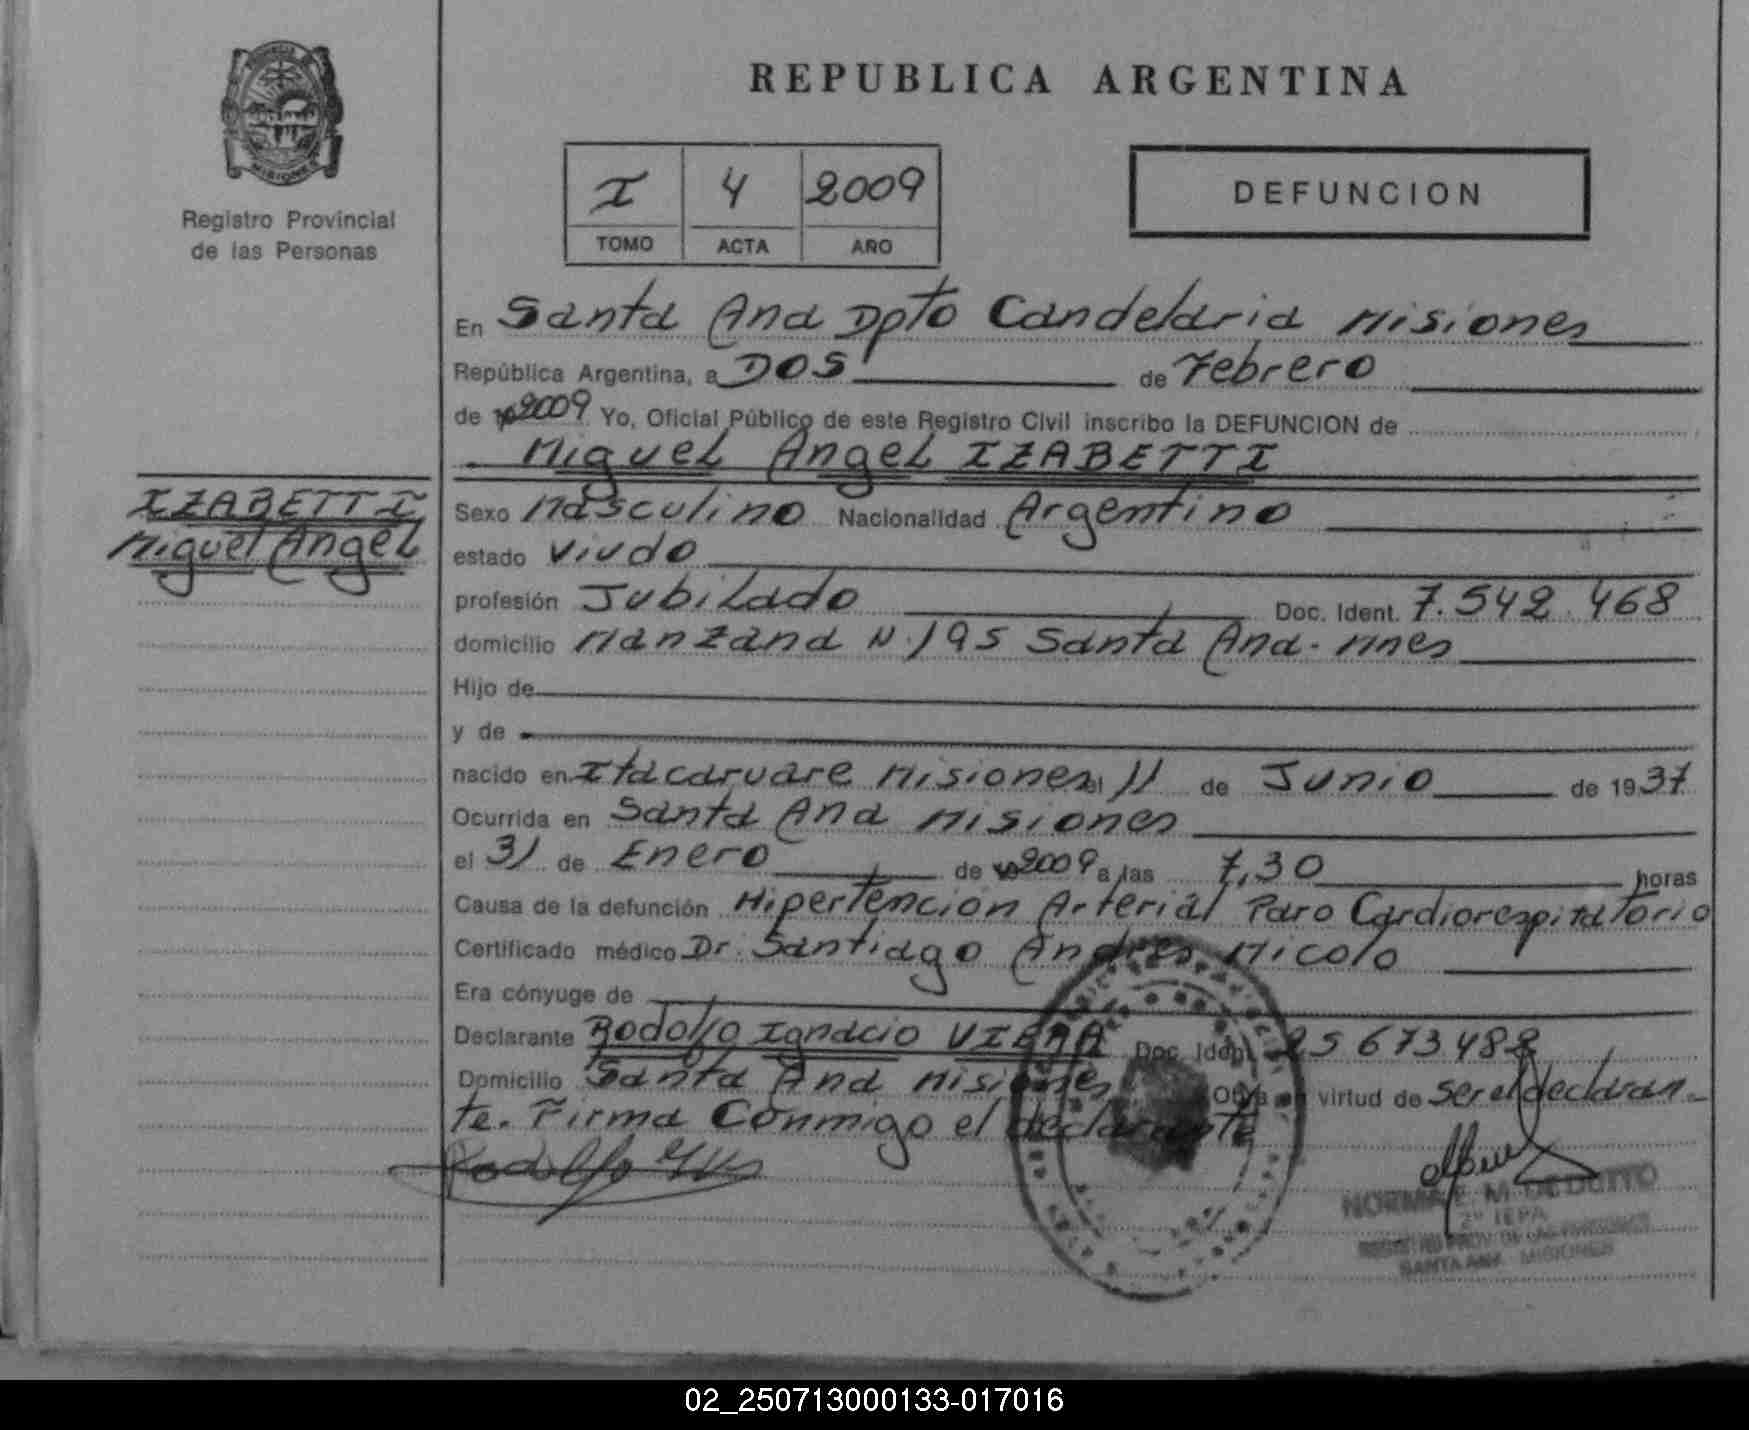 REPUBLICA ARGENTINA
Registro Provincial
de las Personas
I 4 2009
TOMO ACTA AÑO
DEFUNCION
En Santa Ana Dpto Candelaria Misiones
República Argentina, a DOS de Febrero
de 2009 Yo, Oficial Público de este Registro Civil inscribo la DEFUNCION de
Miguel Angel IZABETTI
IZABETTI
Miguel Angel
Sexo Masculino Nacionalidad Argentino
estado Viudo
profesión Jubilado Doc. Ident. 7.542.468
domicilio Manzana N.195 Santa Ana - Mnes
Hijo de
y de
nacido en Itacaruare Misiones el 11 de Junio de 1937
Ocurrida en Santa Ana Misiones
el 31 de Enero de 2009 a las 7,30 horas
Causa de la defunción Hipertencion Arterial Paro Cardiorespitatorio
Certificado médico Dr. Santiago Andres Micolo
Era cónyuge de
Declarante Rodolfo Ignacio VIERA Doc. Ident. 25673488
Domicilio Santa Ana Misiones Obra en virtud de ser el declaran-
te. Firma Conmigo el declarante
NORMA E. M. DE DUTTO
REGISTRO PROV. DE LAS PERSONAS
SANTA ANA MISIONES
02_250713000133-017016